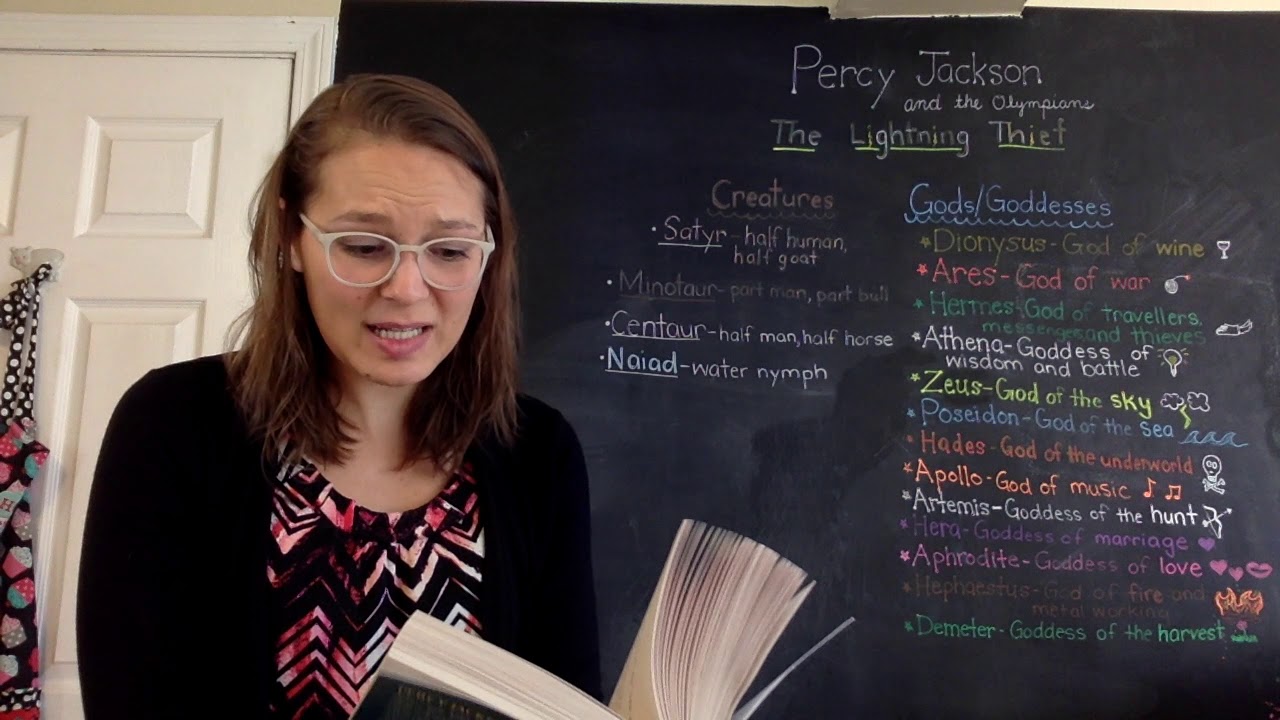 Percy Jackson
and the Olympians
The Lightning Thief
Creatures
• Satyr - half human,
half goat
• Minotaur - part man, part bull
• Centaur - half man, half horse
• Naiad - water nymph
Gods/Goddesses
* Dionysus - God of wine
* Ares - God of war
* Hermes - God of travellers,
messenges and thieves
* Athena - Goddess of
wisdom and battle
* Zeus - God of the sky
* Poseidon - God of the sea
* Hades - God of the underworld
* Apollo - God of music
* Artemis - Goddess of the hunt
* Hera - Goddess of marriage
* Aphrodite - Goddess of love
* Hephaestus - God of fire and
metal working
* Demeter - Goddess of the harvest